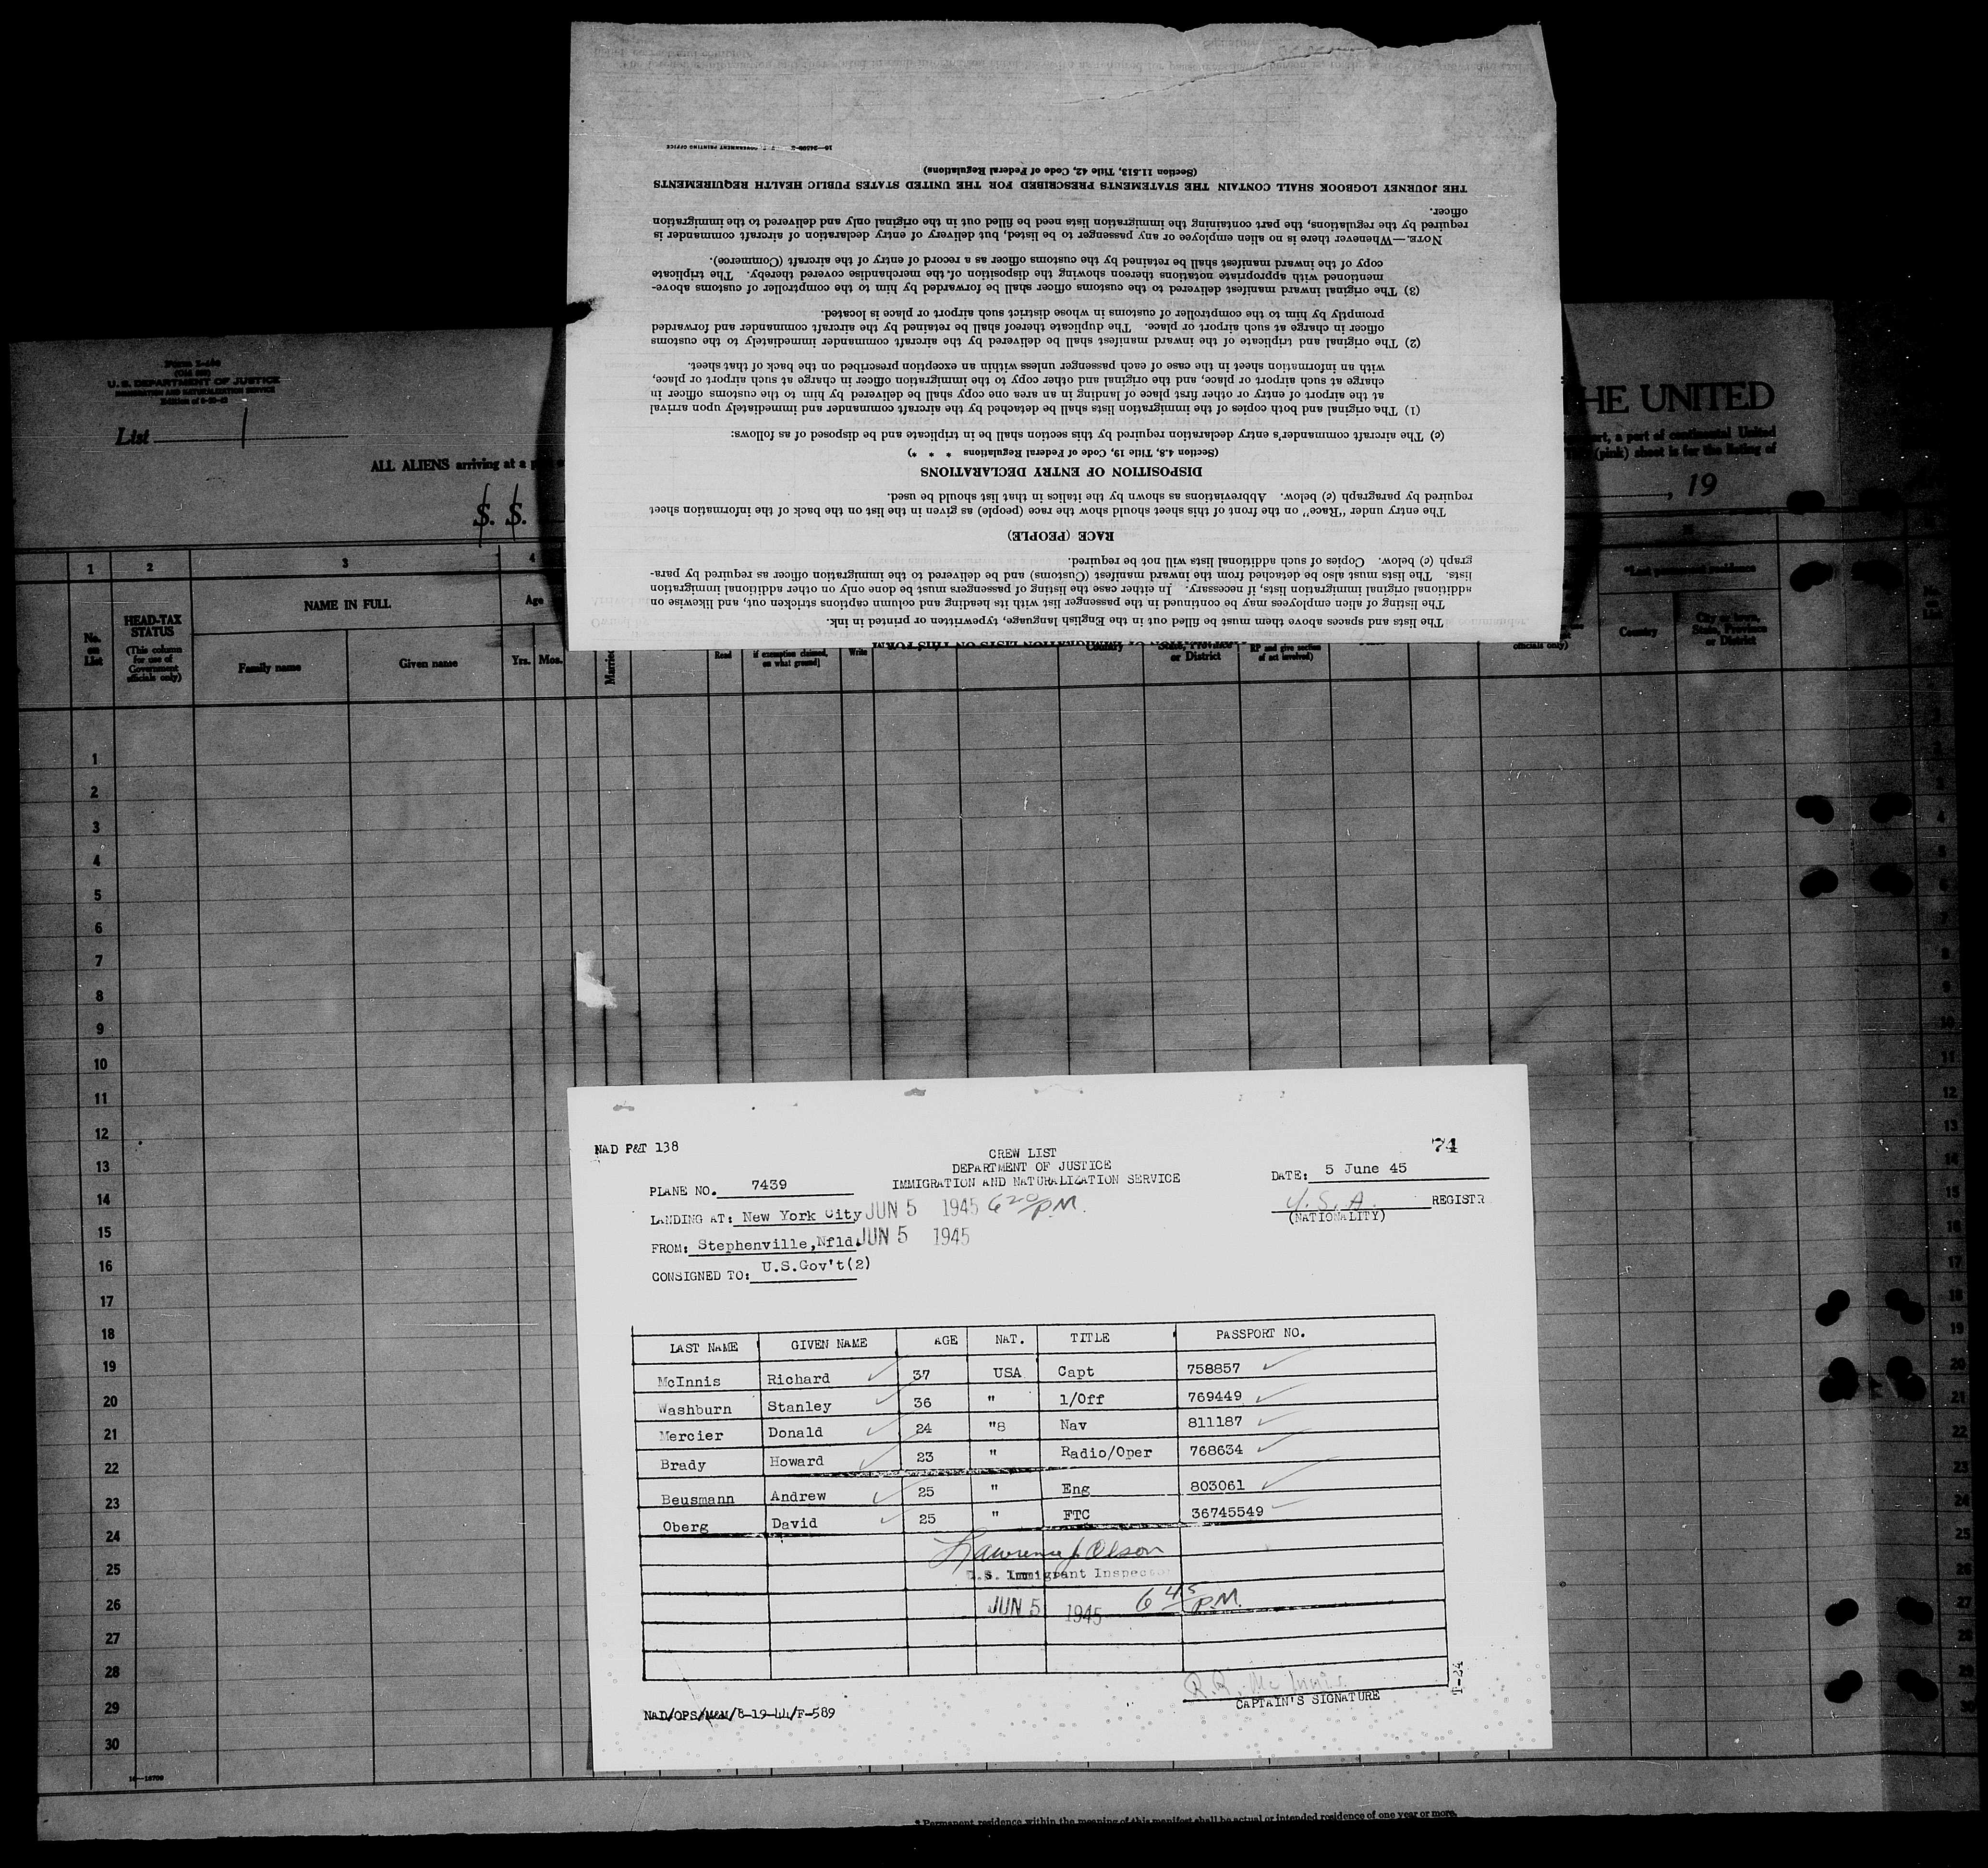 16—24508-2 GOVERNMENT PRINTING OFFICE
(Section 11.513, Title 42, Code of Federal Regulations)
THE JOURNEY LOGBOOK SHALL CONTAIN THE STATEMENTS PRESCRIBED FOR THE UNITED STATES PUBLIC HEALTH REQUIREMENTS
officer.
required by the regulations, the part containing the immigration lists need be filled out in the original only and delivered to the immigration
NOTE.—Whenever there is no alien employee or any passenger to be listed, but delivery of entry declaration of aircraft commander is
copy of the inward manifest shall be retained by the customs officer as a record of entry of the aircraft (Commerce).
mentioned with appropriate notations thereon showing the disposition of the merchandise covered thereby. The triplicate
(3) The original inward manifest delivered to the customs officer shall be forwarded by him to the comptroller of customs above-
promptly by him to the comptroller of customs in whose district such airport or place is located.
officer in charge at such airport or place. The duplicate thereof shall be retained by the aircraft commander and forwarded
(2) The original and triplicate of the inward manifest shall be delivered by the aircraft commander immediately to the customs
with an information sheet in the case of each passenger unless within an exception prescribed on the back of that sheet.
charge at such airport or place, and the original and other copy to the immigration officer in charge at such airport or place,
at the airport of entry or other first place of landing in an area one copy shall be delivered by him to the customs officer in
(1) The original and both copies of the immigration lists shall be detached by the aircraft commander and immediately upon arrival
(c) The aircraft commander's entry declaration required by this section shall be in triplicate and be disposed of as follows:
(Section 4.8, Title 19, Code of Federal Regulations * * *)
DISPOSITION OF ENTRY DECLARATIONS
required by paragraph (c) below. Abbreviations as shown by the italics in that list should be used.
The entry under "Race" on the front of this sheet should show the race (people) as given in the list on the back of the information sheet
RACE (PEOPLE)
graph (c) below. Copies of such additional lists will not be required.
lists. The lists must also be detached from the inward manifest (Customs) and be delivered to the immigration officer as required by para-
additional original immigration lists, if necessary. In either case the listing of passengers must be done only on other additional immigration
The listing of alien employees may be continued in the passenger list with its heading and column captions stricken out, and likewise on
The lists and spaces above them must be filled out in the English language, typewritten or printed in ink.
OF IMMIGRATION LISTS ON THIS FORM
U. S. DEPARTMENT OF JUSTICE
IMMIGRATION AND NATURALIZATION SERVICE
List 1
THE UNITED
ALL ALIENS arriving at a
a part of continental United
(pink) sheet is for the listing of
S. S.
, 19
1 2 3 4
HEAD-TAX STATUS
(This column for use of Government officials only)
NAME IN FULL
Age
*Last permanent residence
No. on List
Family name
Given name
Yrs. Mos.
Married
Read
if exemption claimed, on what ground]
Write
Country
State, Province or District
RP and give section of act involved)
officials only)
Country
City or town, State, Province or District
1
2
3
4
5
6
7
8
9
10
11
12
13
14
15
16
17
18
19
20
21
22
23
24
25
26
27
28
29
30
16—18709
* Permanent residence within the meaning of this manifest shall be actual or intended residence of one year or more.
NAD P&T 138
74
CREW LIST
DEPARTMENT OF JUSTICE
IMMIGRATION AND NATURALIZATION SERVICE
DATE: 5 June 45
PLANE NO. 7439
U.S.A. REGISTR
(NATIONALITY)
LANDING AT: New York City JUN 5 1945 6 20 P.M.
FROM: Stephenville,Nfld. JUN 5 1945
CONSIGNED TO: U.S.Gov't(2)
LAST NAME GIVEN NAME AGE NAT. TITLE PASSPORT NO.
McInnis Richard 37 USA Capt 758857
Washburn Stanley 36 " 1/Off 769449
Mercier Donald 24 "8 Nav 811187
Brady Howard 23 " Radio/Oper 768634
Beusmann Andrew 25 " Eng 803061
Oberg David 25 " FTC 36745549
Lawrence J Olson
U.S. Immigrant Inspector
JUN 5 1945 6 45 P.M.
R.R. McInnis
CAPTAIN'S SIGNATURE
T-24
NAD/OPS/M&M/8-19-44/F-589